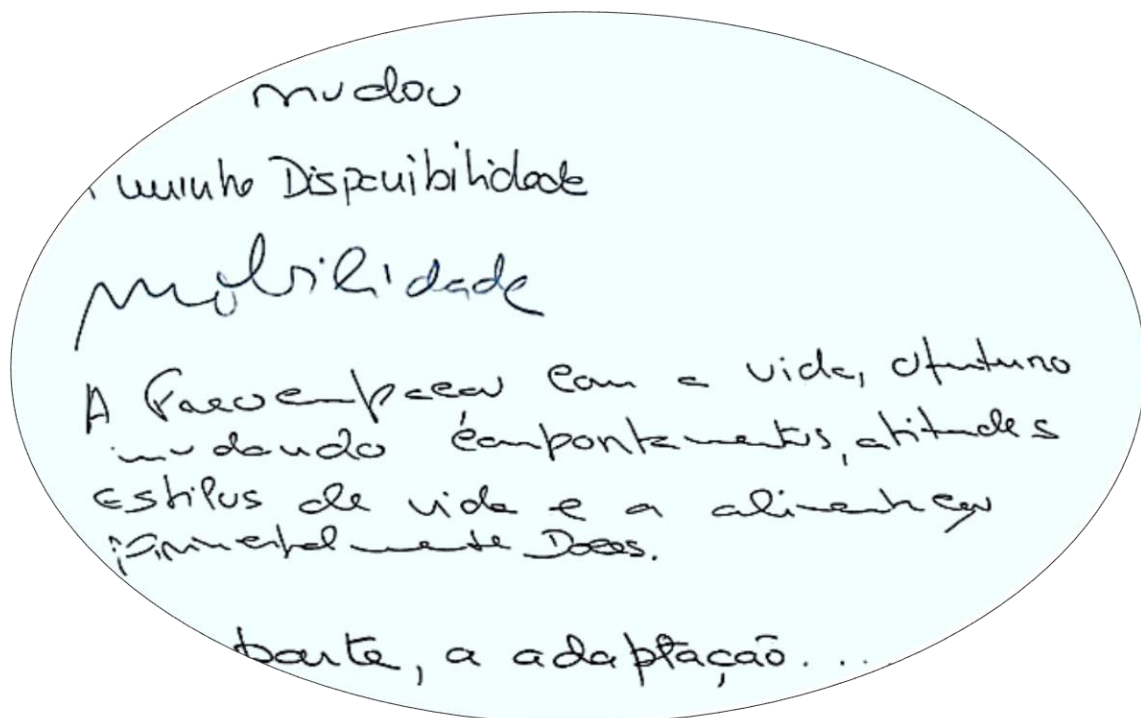 mudou
minha Disponibilidade
mobilidade
A Preocupaçao com a vida, o futuro
mudando comportamentos, atitudes
Estilos de vida e a alimentaçao
principalmente Doces.
parte, a adaptação...